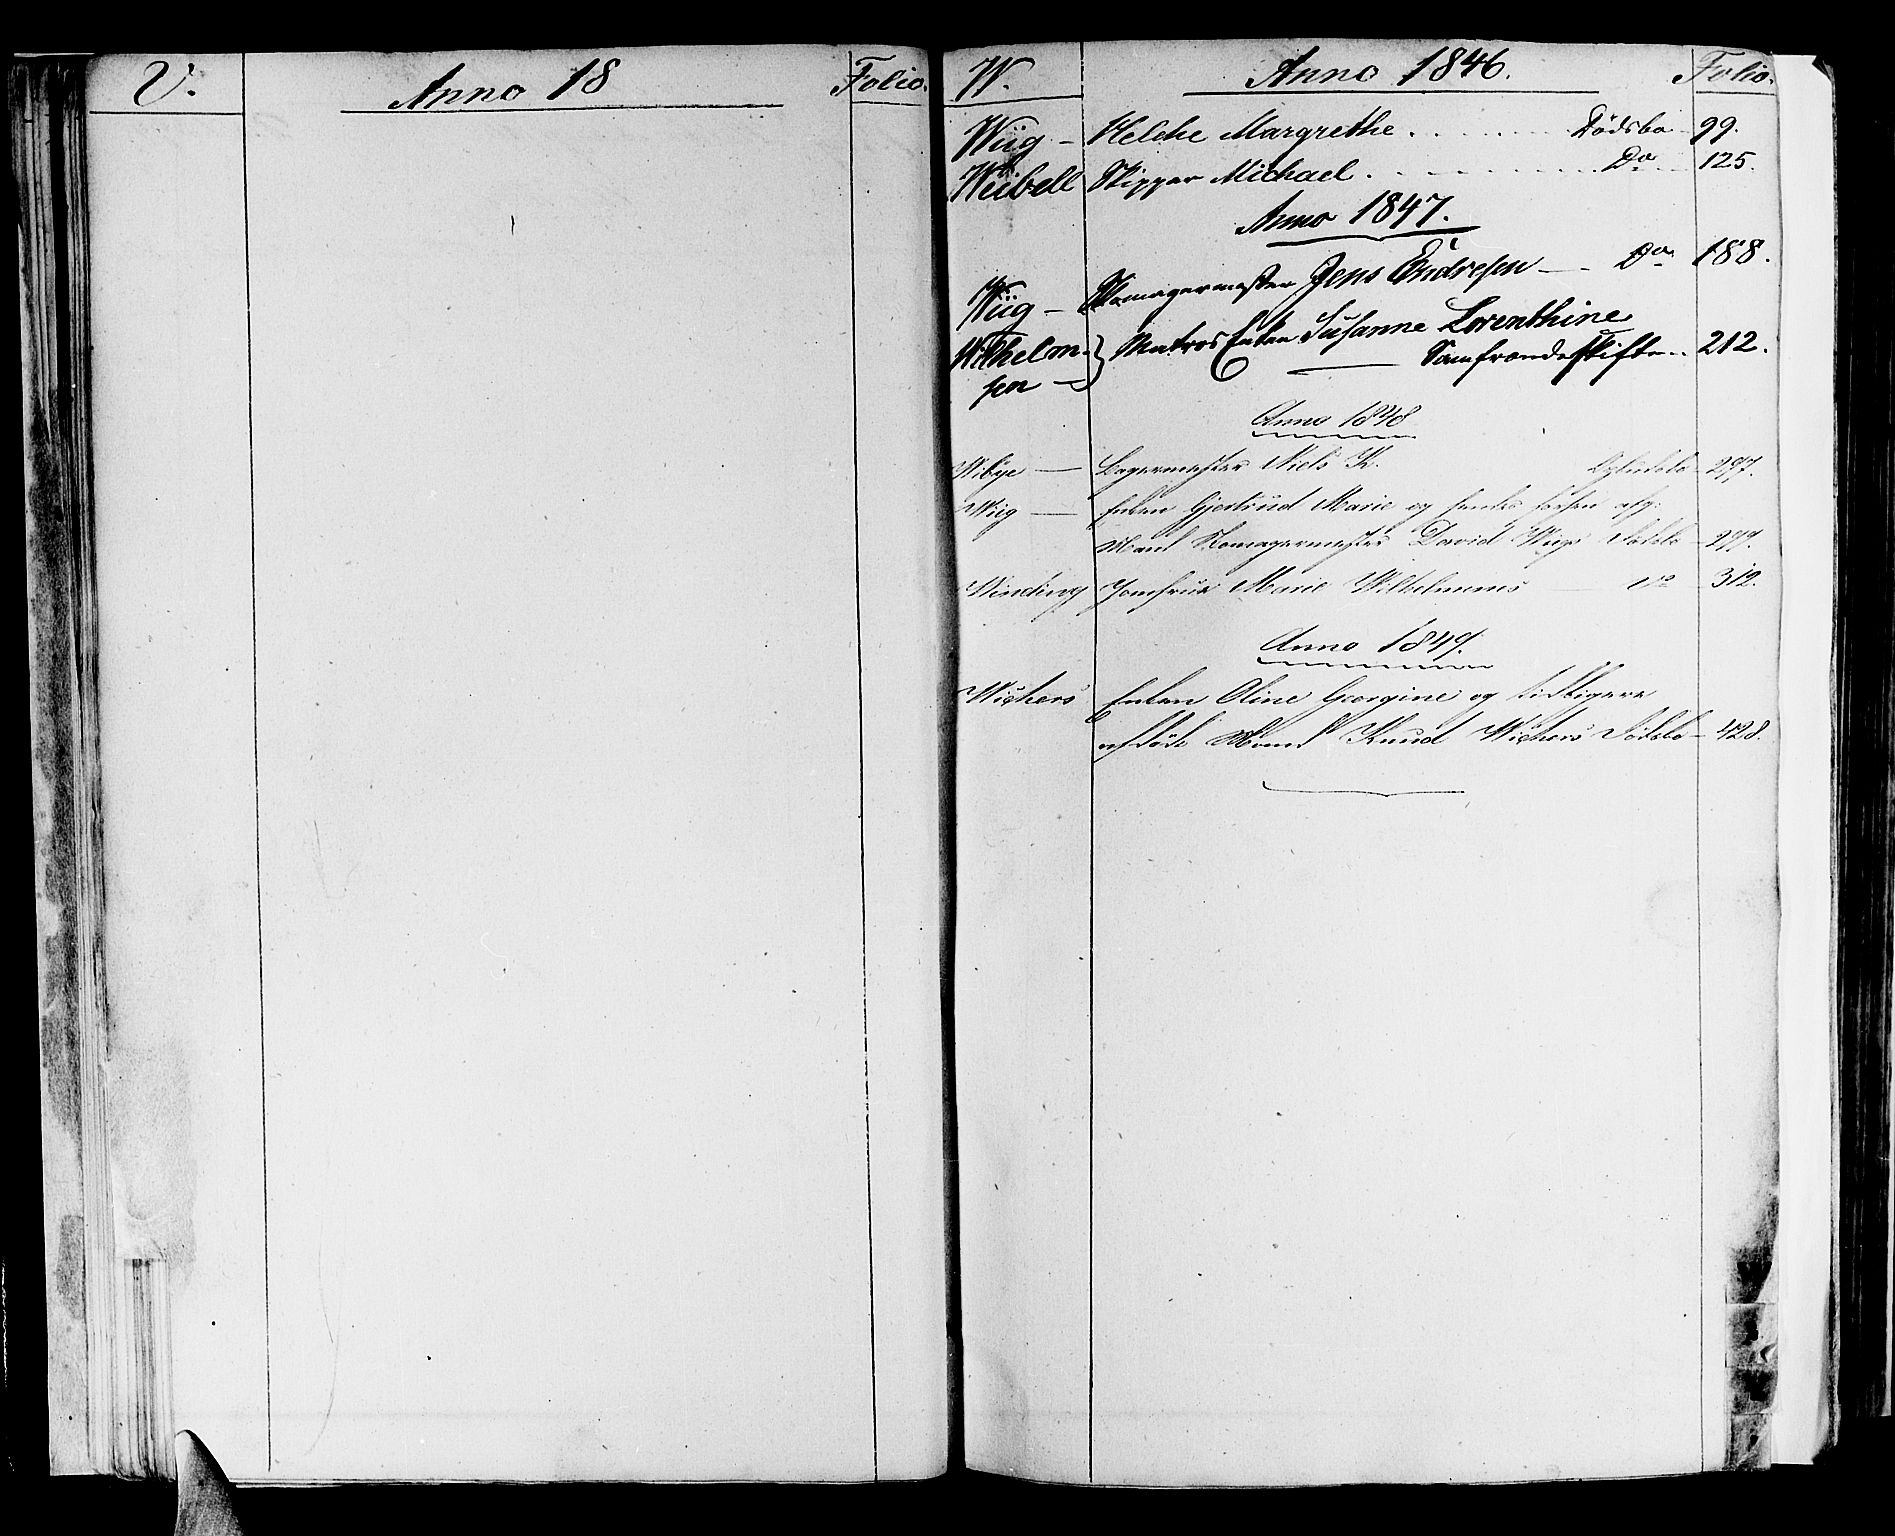 V.
Anno 18
Folio.
W.
Anno 1846.
Folio.
Wiig – Helche Margrethe . . . . . Dödsbo 99.
Weibell Skipper Michael . . . . . . . . . Do 125.
Anno 1847.
Wiig – Skomagermester Jens Endresen — Do 188.
Wilhelm- } Matros Enken Susanne Lorenthine
sen — Samfrændeskifte .. 212.
Anno 1848
Wibye — Bagermester Niels K. 297.
Wiig — Enken Gjertrud Marie og hendes forhen afg:
Mand Skomagermester David Wiigs Dödsbo – 299.
Winding Jomfrue Marie Wilhelmines — Do – 312.
Anno 1849.
Wichers Enken Oline Georgine og tidligere
afdöde Mand Knud Wichers Dödsbo – 428.